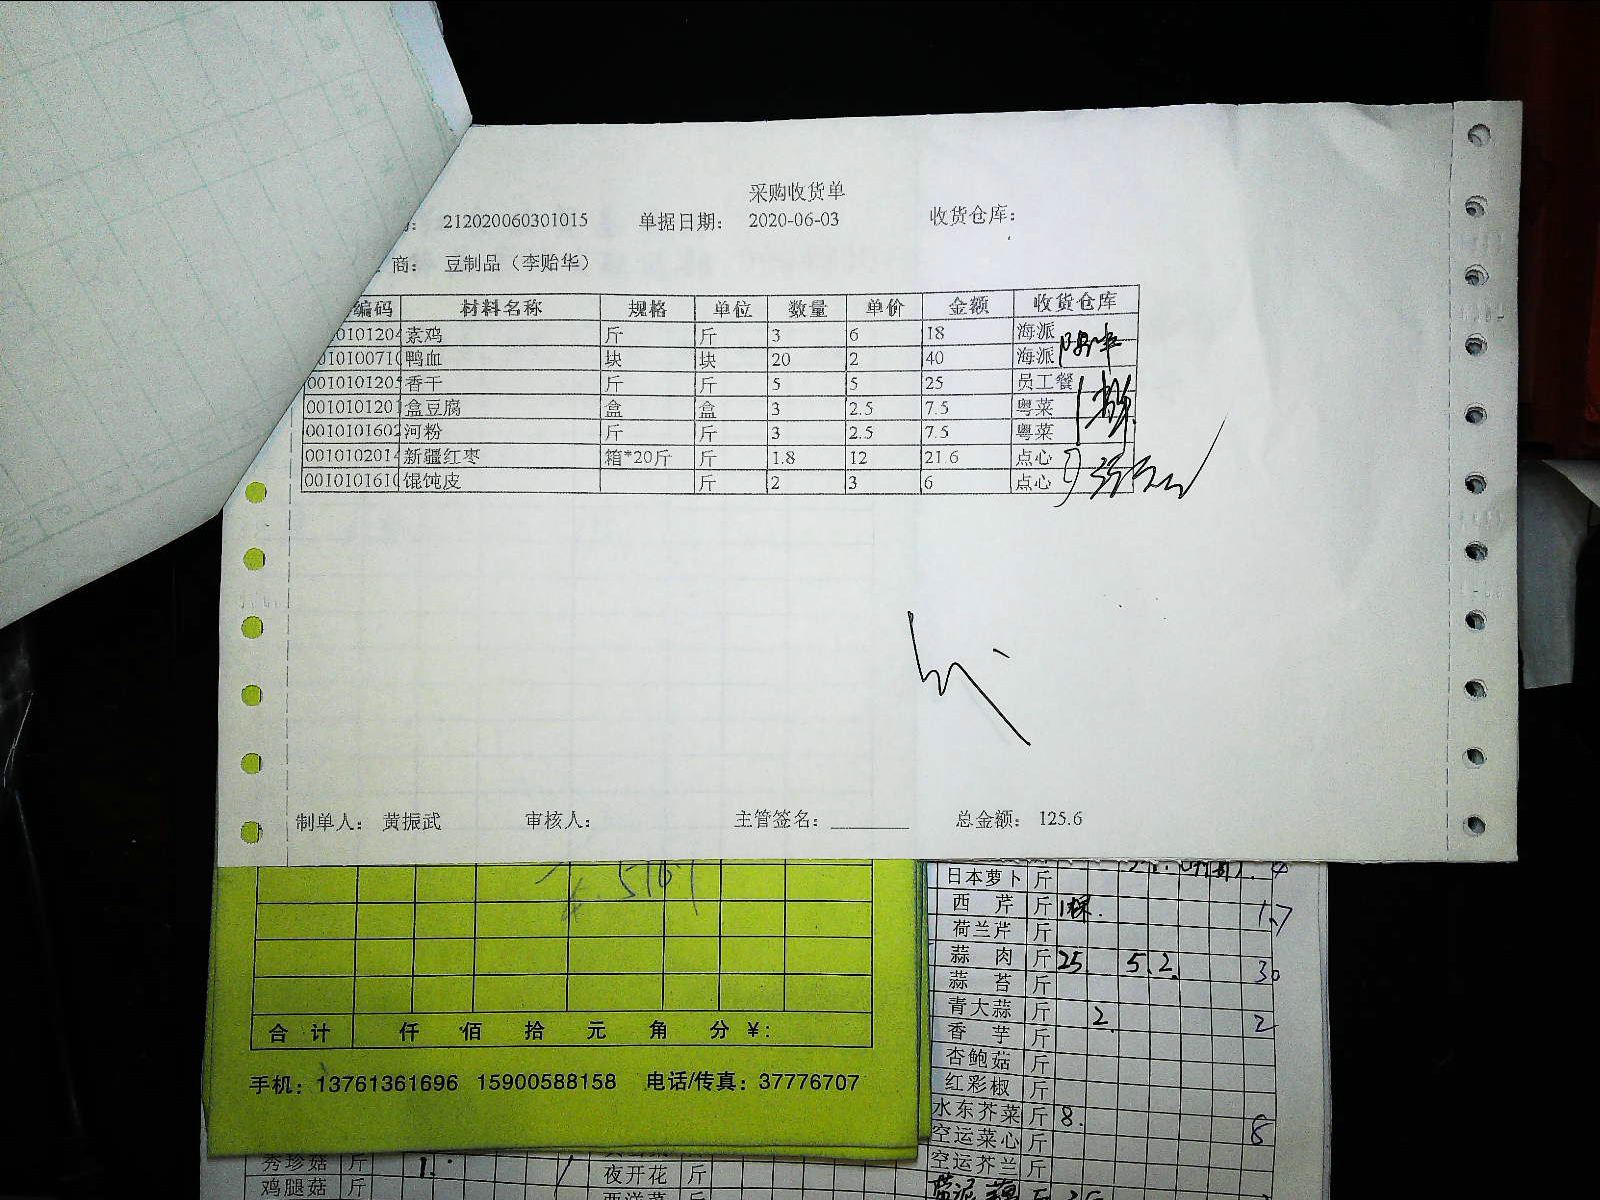 采购收货单
212020060301015 单据日期: 2020-06-03 收货仓库:
商: 豆制品（李贻华）
编码 材料名称 规格 单位 数量 单价 金额 收货仓库
0101204 素鸡 斤 斤 3 6 18 海派
010100710 鸭血 块 块 20 2 40 海派
001010120 香干 斤 斤 5 5 25 员工餐
001010120 盒豆腐 盒 盒 3 2.5 7.5 粤菜
0010101602 河粉 斤 斤 3 2.5 7.5 粤菜
0010102014 新疆红枣 箱*20斤 斤 1.8 12 21.6 点心
0010101610 馄饨皮 斤 2 3 6 点心
制单人: 黄振武 审核人: 主管签名: 总金额: 125.6
合计 仟 佰 拾 元 角 分 ¥:
手机: 13761361696 15900588158 电话/传真: 37776707
日本萝卜 斤
西芹 斤 1.7
荷兰芹 斤
蒜肉 斤 25 5.2 30
蒜苔 斤
青大蒜 斤 2 2
香芋 斤
杏鲍菇 斤
红彩椒 斤
水东芥菜 斤 8. 8
空运菜心 斤
空运芥兰 斤
秀珍菇 斤 1.
夜开花 斤
鸡腿菇 斤
西洋菜 斤